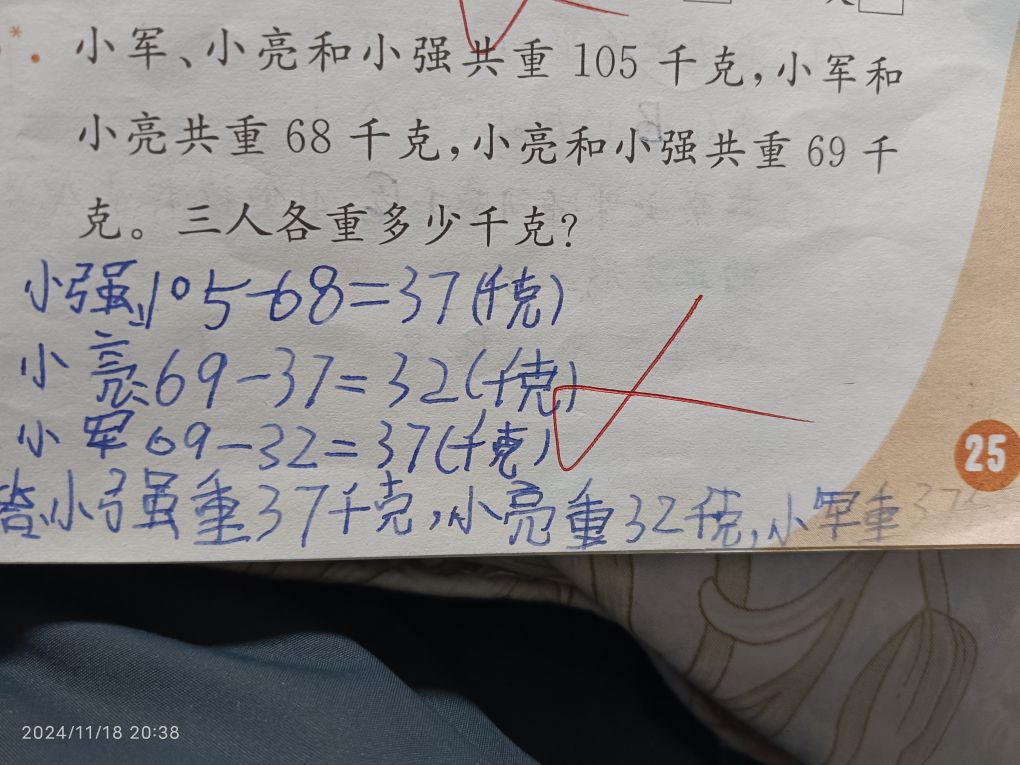 小军、小亮和小强共重 105 千克,小军和
小亮共重 68 千克,小亮和小强共重 69 千
克。三人各重多少千克?
小强:105-68=37(千克)
小亮:69-37=32(千克)
小军 69-32=37(千克)
答:小强重37千克,小亮重32千克,小军重37
25
2024/11/18 20:38